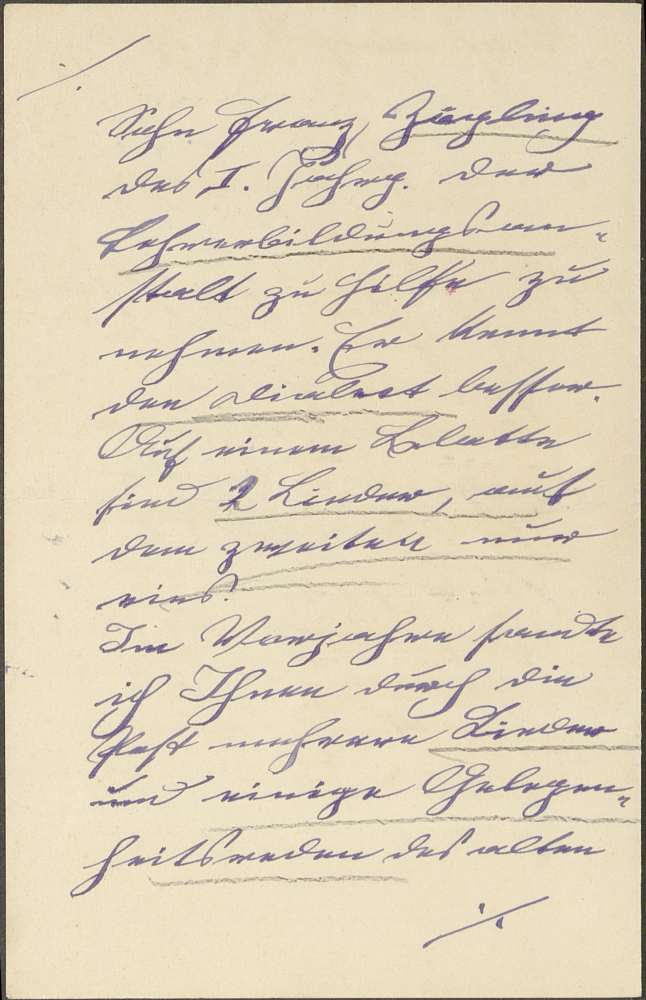 ./.
Sohn Franz, Zögling
des I. Jahrg. der
Lehrerbildungsan-
stalt zu Hilfe zu
nehmen. Er kennt
den Dialect besser.
Auf einem Blatte
sind 2 Lieder, auf
dem zweiten nur
eins.
Im Vorjahre sandte
ich Ihnen durch die
Post mehrere Lieder
und einige Gelegen-
heitsreden des alten
./.